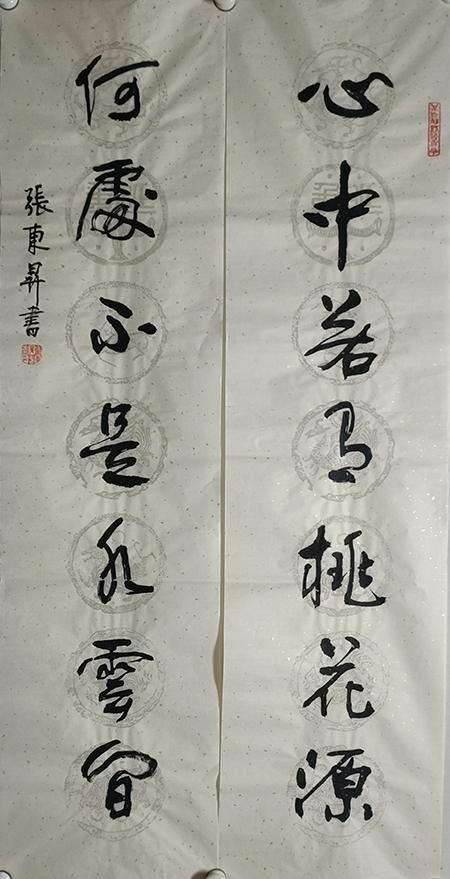 心中若有桃花源
何處不是水雲間
張東昇書